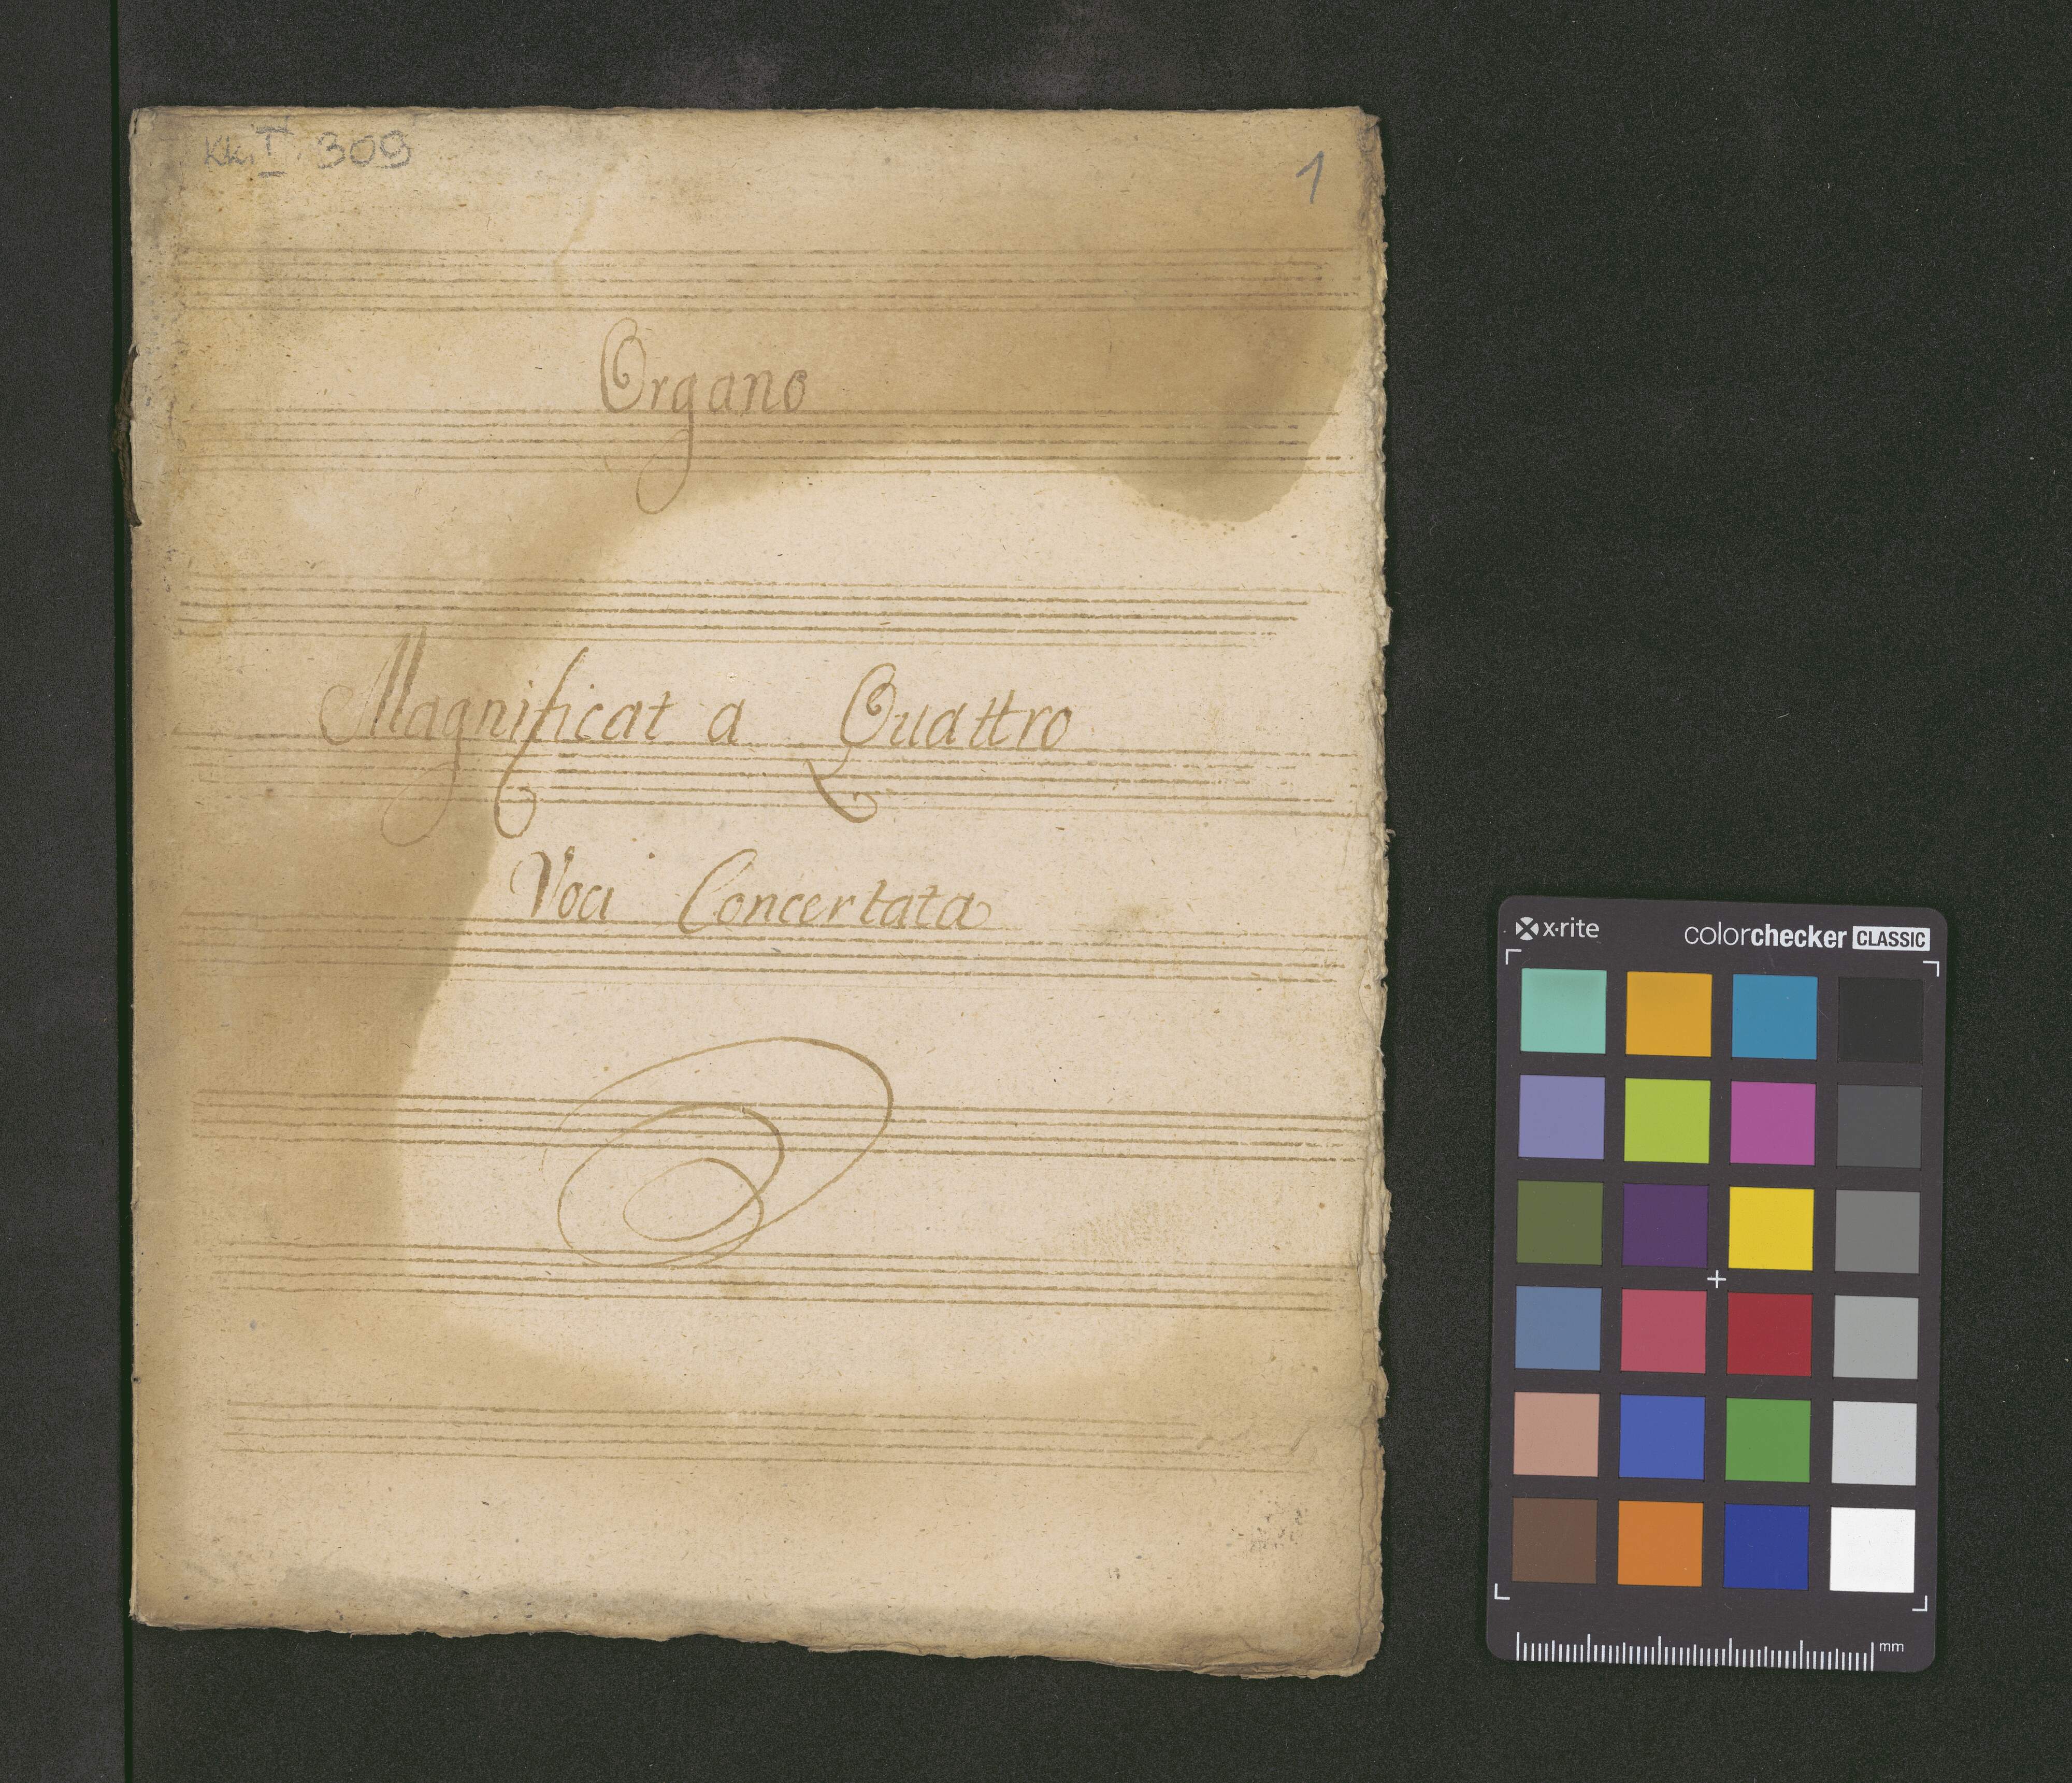 Kk. I. 309
1
Organo
Magnificat a Quattro
Voci Concertata
x·rite
colorchecker CLASSIC
mm